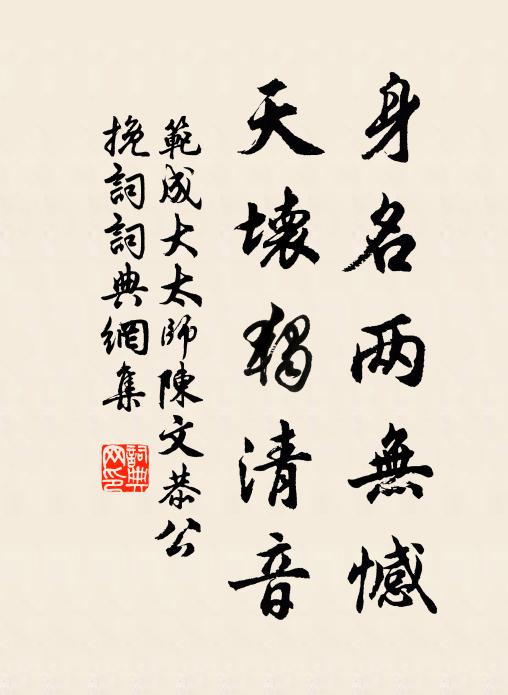 身名两無憾
天壊獨清音
範成大太師陳文恭公
挽詞詞典網集
詞典网印